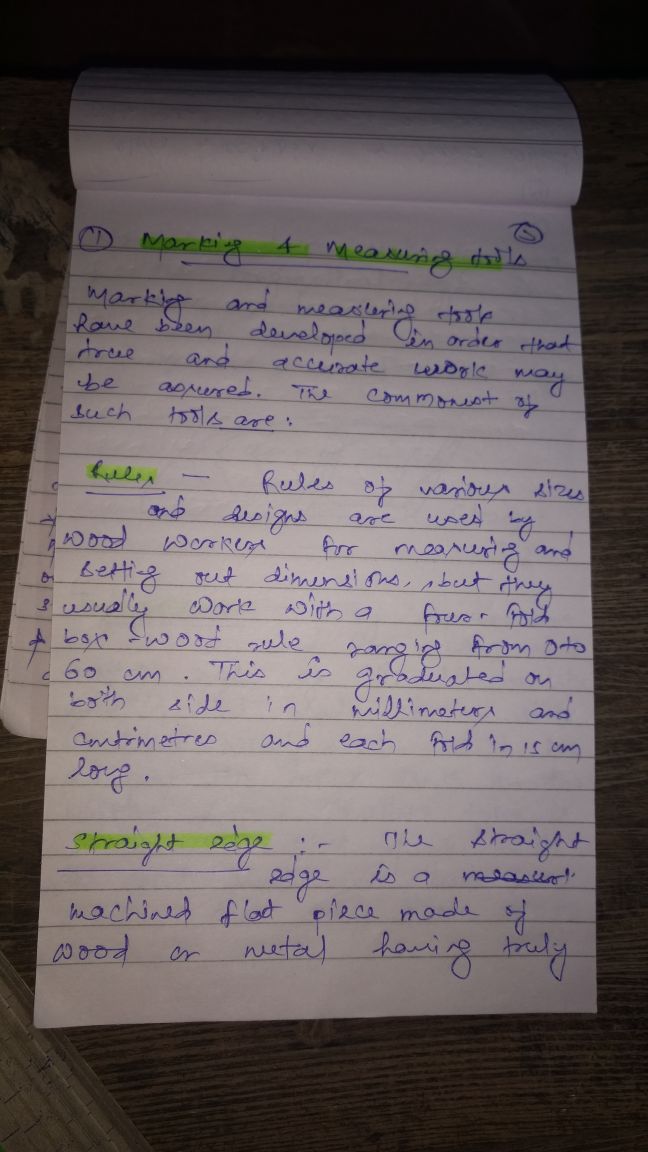 ① Marking & Measuring tools
5
Marking and measuring tools
have been developed in order that
true and accurate work may
be assured. The commonest of
such tools are :
Rules — Rules of various sizes
and designs are used by
wood workers for measuring and
setting out dimensions, but they
usually work with a four-fold
box-wood rule ranging from 0 to
60 cm. This is graduated on
both side in millimeters and
centimetres and each fold in 15 cm
long.
Straight edge :- The straight
edge is a
machined flat piece made of
wood or metal having truly